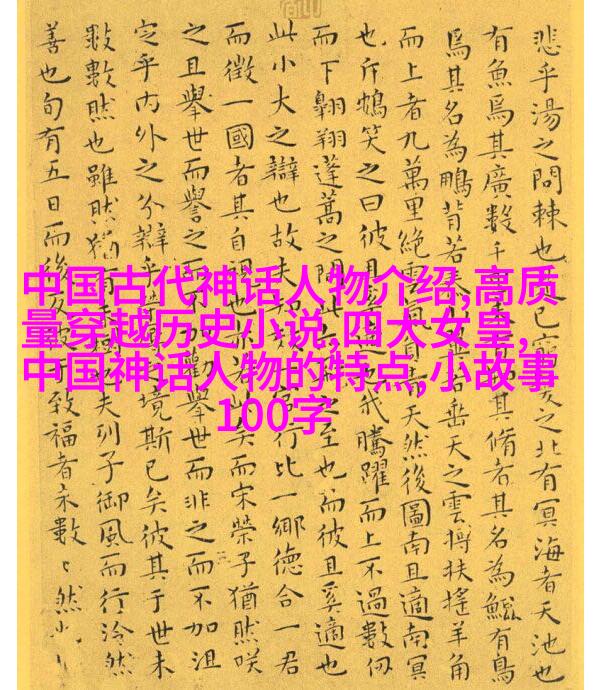 中国古代神话人物介绍,高质
量穿越历史小说,四大女皇,
中国神话人物的特点,小故事
100字
悲乎湯之問棘也已窮之北有冥海者天池也
有魚焉其廣數千其脩者其名為鯤有鳥
焉其名為鵬背若垂天之雲摶扶搖羊角
而上者九萬里絕雲氣天然後圖南且適南冥
也斥鴳笑之曰彼且我騰躍而上不過數仞
而下翱翔蓬蒿之間此之至也而彼且奚適也
此小大之辯也故夫行比一鄉德合一君
而徵一國者其自視也矣而宋榮子猶然咲
之且舉世而譽之而不加勸舉世而非之而不加沮
定乎內外之分辯乎境斯已矣彼其于世未
數數然也雖然猶有也夫列子御風而行泠然
善也旬有五日而後反彼于致福者未數〻然